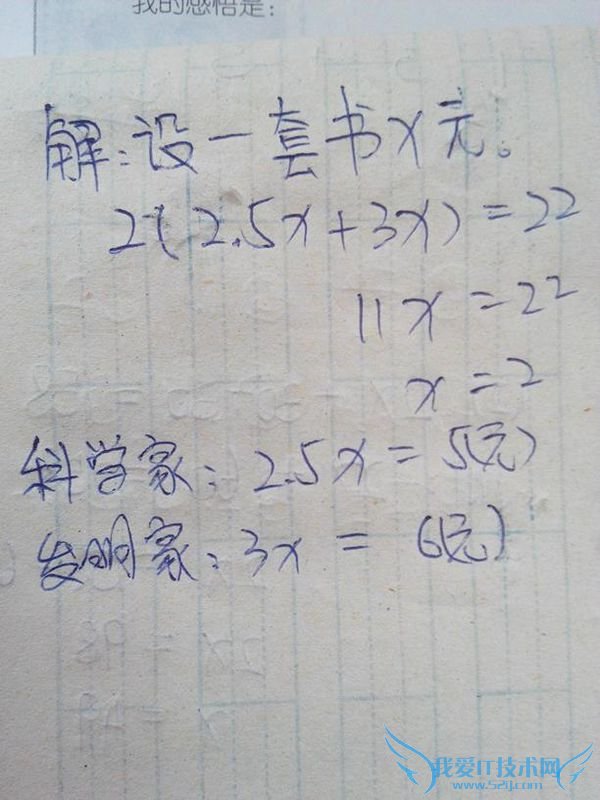 我的感悟是:
解:设一套书x元。
2(2.5x+3x)=22
11x=22
x=2
科学家:2.5x=5(元)
发明家:3x=6(元)
我爱IT技术网
www.52ij.com